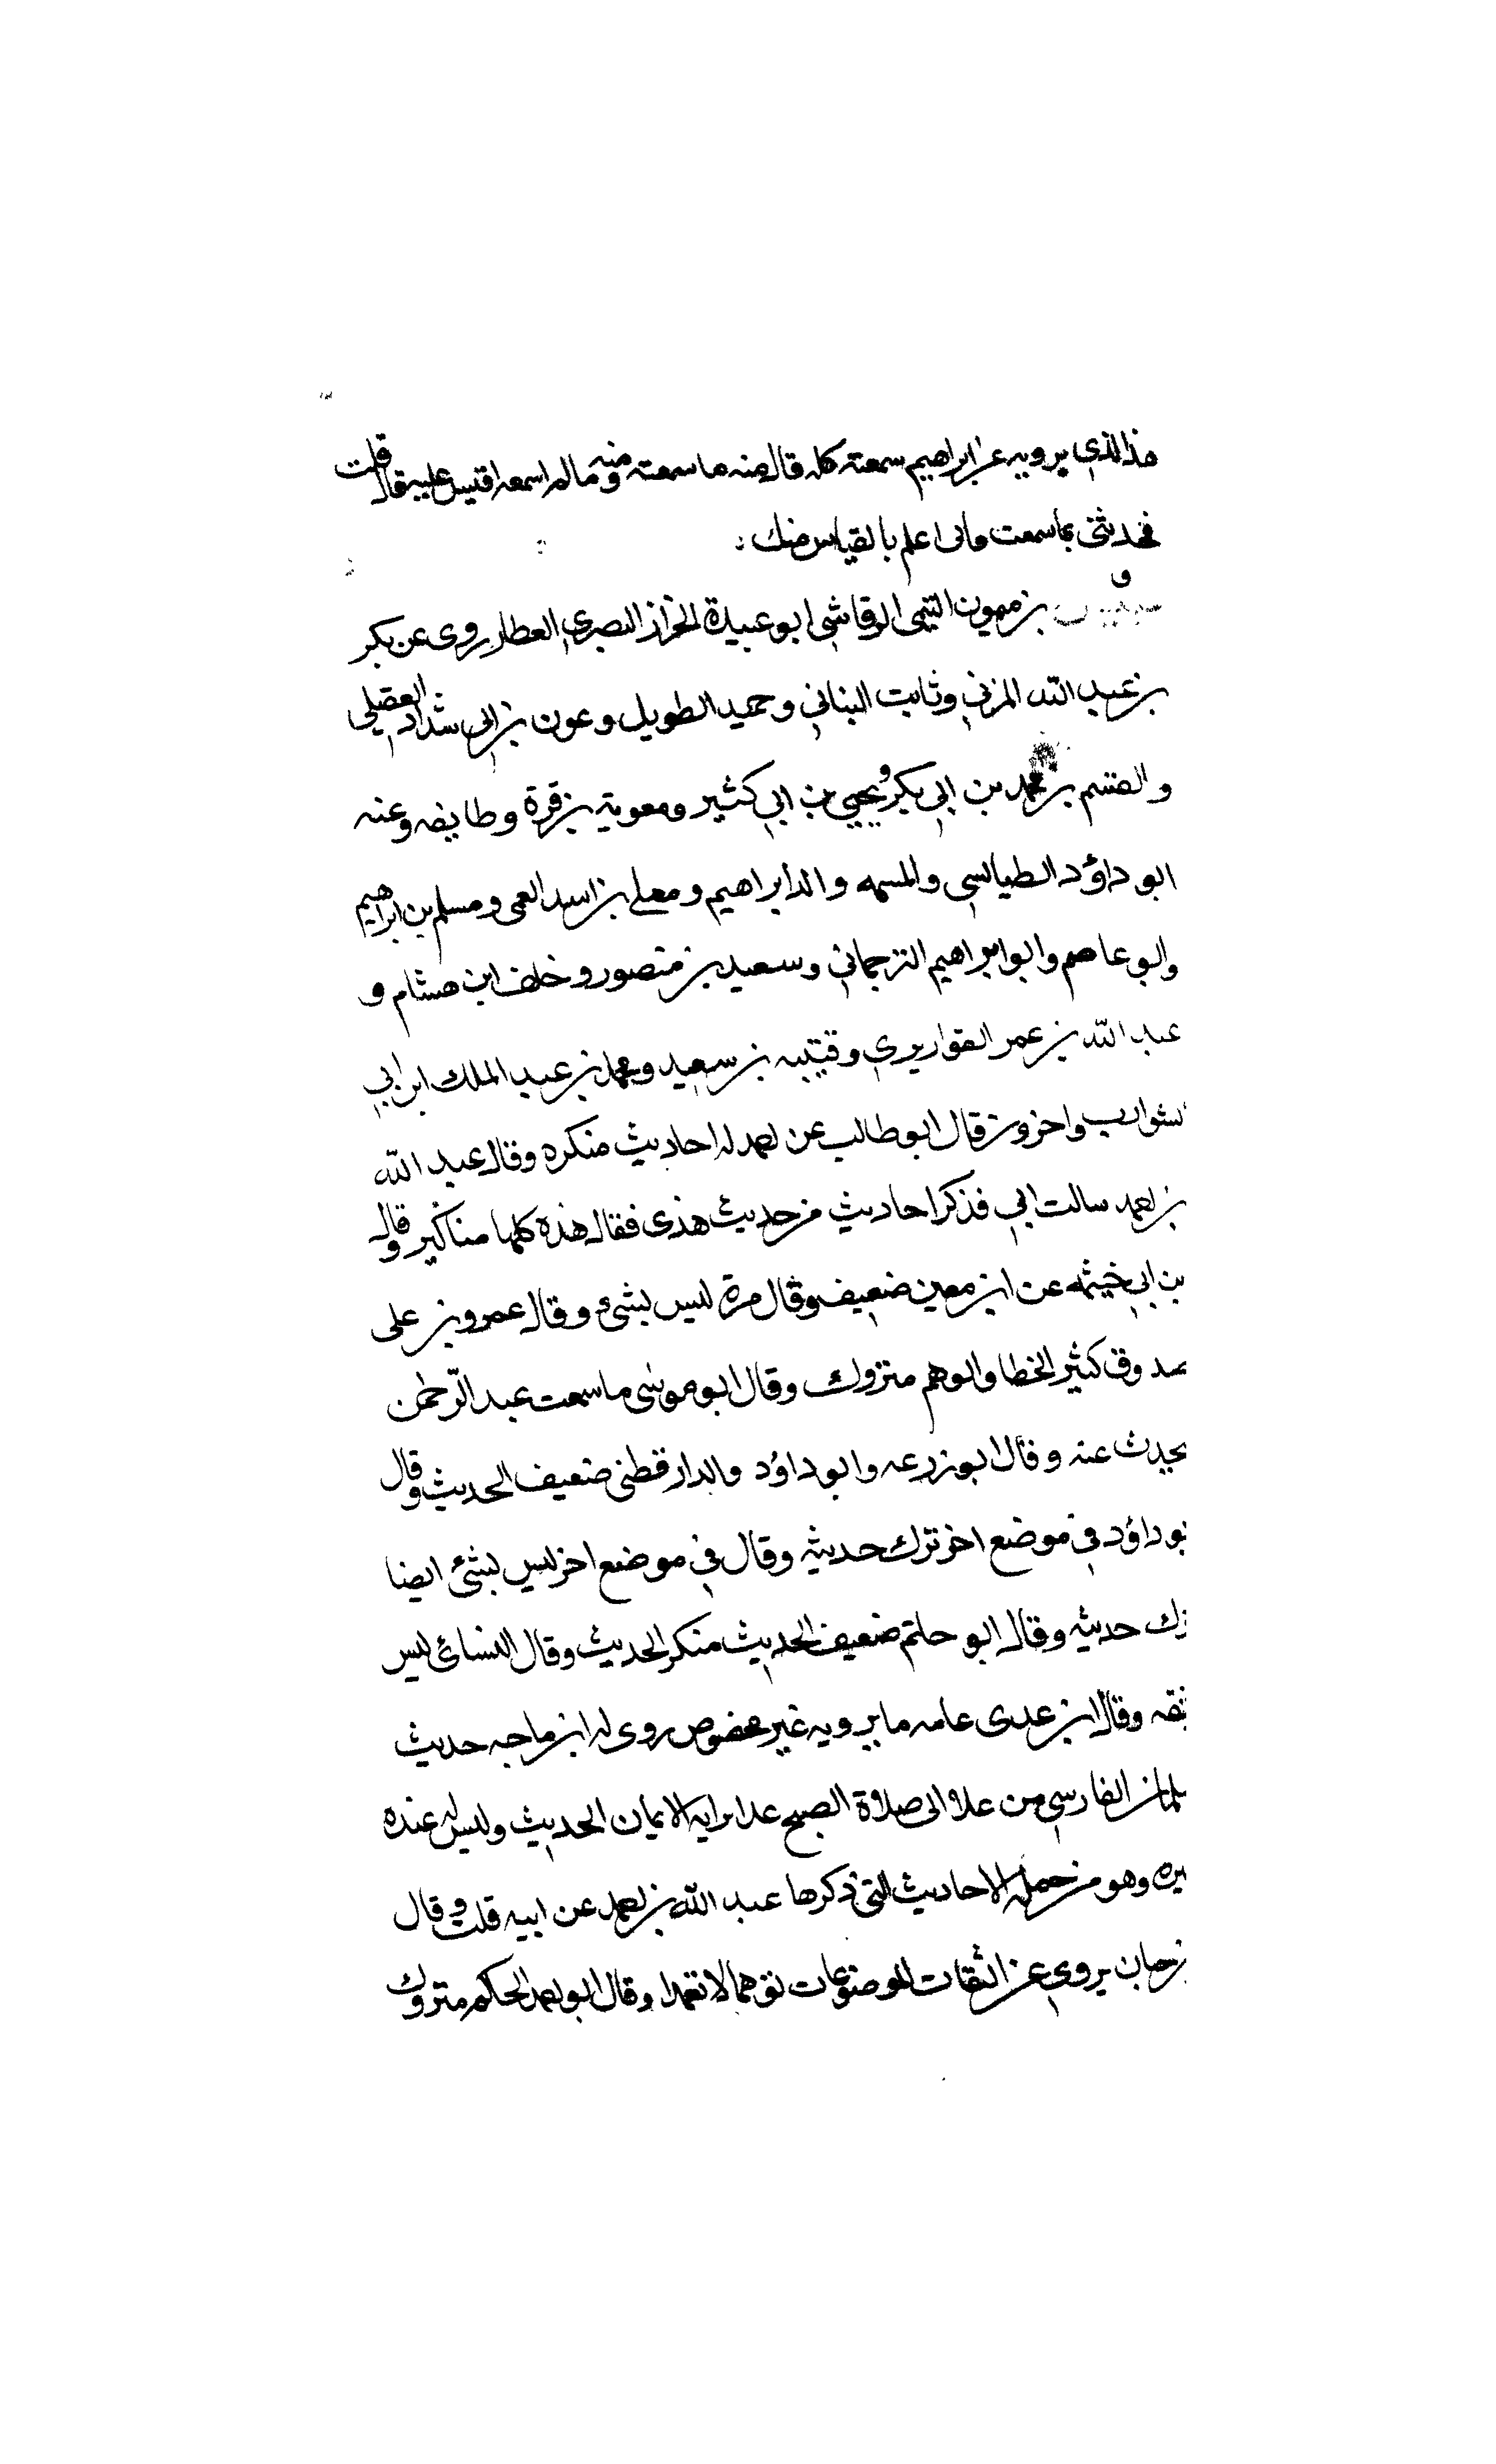 هذا الذي يرويه عن ابراهيم سمعته كله قال منه ما سمعته ومنه مالم اسمعه اقيس عليه قال قلت
فحدثني بما سمعت فاني اعلم بالقياس منك
بن ميمون التيمي الرقاشي ابو عبيدة الخراز البصري العطار روى عن بكر
بن عبد الله المزني وثابت البناني وحميد الطويل وعون بن ابي شداد العقيلي
والقسم بن محمد بن ابي بكر ويحيي بن ابي كثير ومعوية بن قرة وطايفه وعنه
ابو داؤد الطيالسي وابراهيم ومعلى بن اسد العمى ومسلم بن ابراهيم
وابو عاصم وابو ابراهيم الترجماني وسعيد بن منصور وخلف ابن هشام و
عبد الله بن عمر القواريري وقتيبه بن سعيد ومحمد بن عبد الملك ابن ابي
الشوارب واخرون قال ابو طالب عن احمد له احاديث منكره وقال عبد الله
بن احمد سالت ابي فذكر احاديث من حديث هذى فقال هذه كلها مناكير وقال
بن ابي خيثمه عن ابن معين ضعيف وقال مرة ليس بشيء وقال عمرو بن على
صدوق كثير الخطا والوهم متروك وقال ابو موسى ما سمعت عبد الرحمن
يحدث عنه وقال ابو زرعه وابو داؤد والدارقطني ضعيف الحديث وقال
ابو داؤد في موضع اخر ترك حديثه وقال في موضع اخر ليس بشئ ايضا
ترك حديثه وقال ابو حاتم ضعيف الحديث منكر الحديث وقال النسائي ليس
بثقه وقال ابن عدى عامه ما يرويه غير محفوض روى له ابن ماجه حديث
سلمان الفارسي من غدا الى صلاة الصبح غدا براية الايمان الحديث وليس له عنده
غيره وهو من جملة الاحاديث التي ذكرها عبد الله بن احمد عن ابيه قلت وقال
بن حبان يروي عن الثقات الموضوعات توهما لا تعمدا وقال ابو احمد الحكم متروك